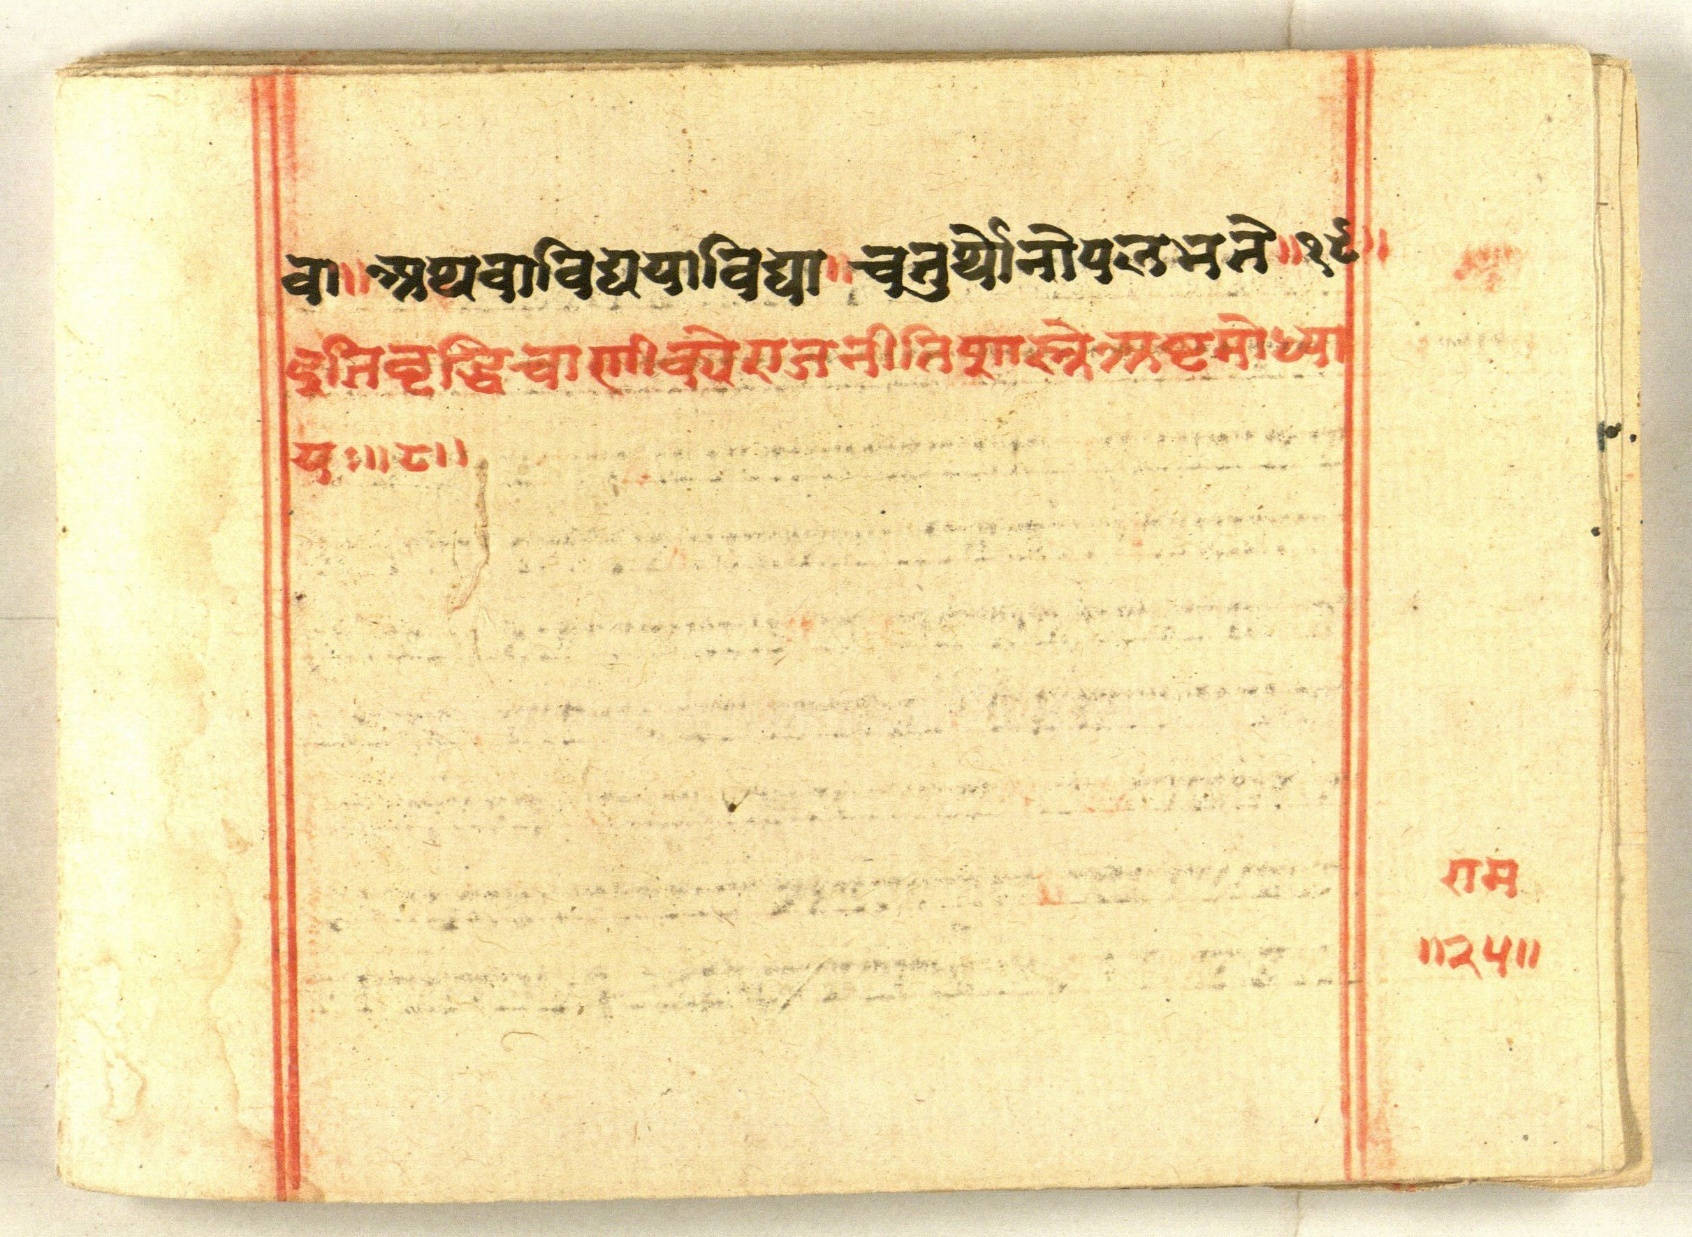 वा ॥ अथवाविद्ययाविद्या ॥ चतुर्थोनोपलभ्यते ॥ १९ ॥
इतिवृद्धिचाणीक्येराजनीतिशास्त्रेअष्टमोध्या
यः ॥ ८ ॥
राम
॥ २५ ॥